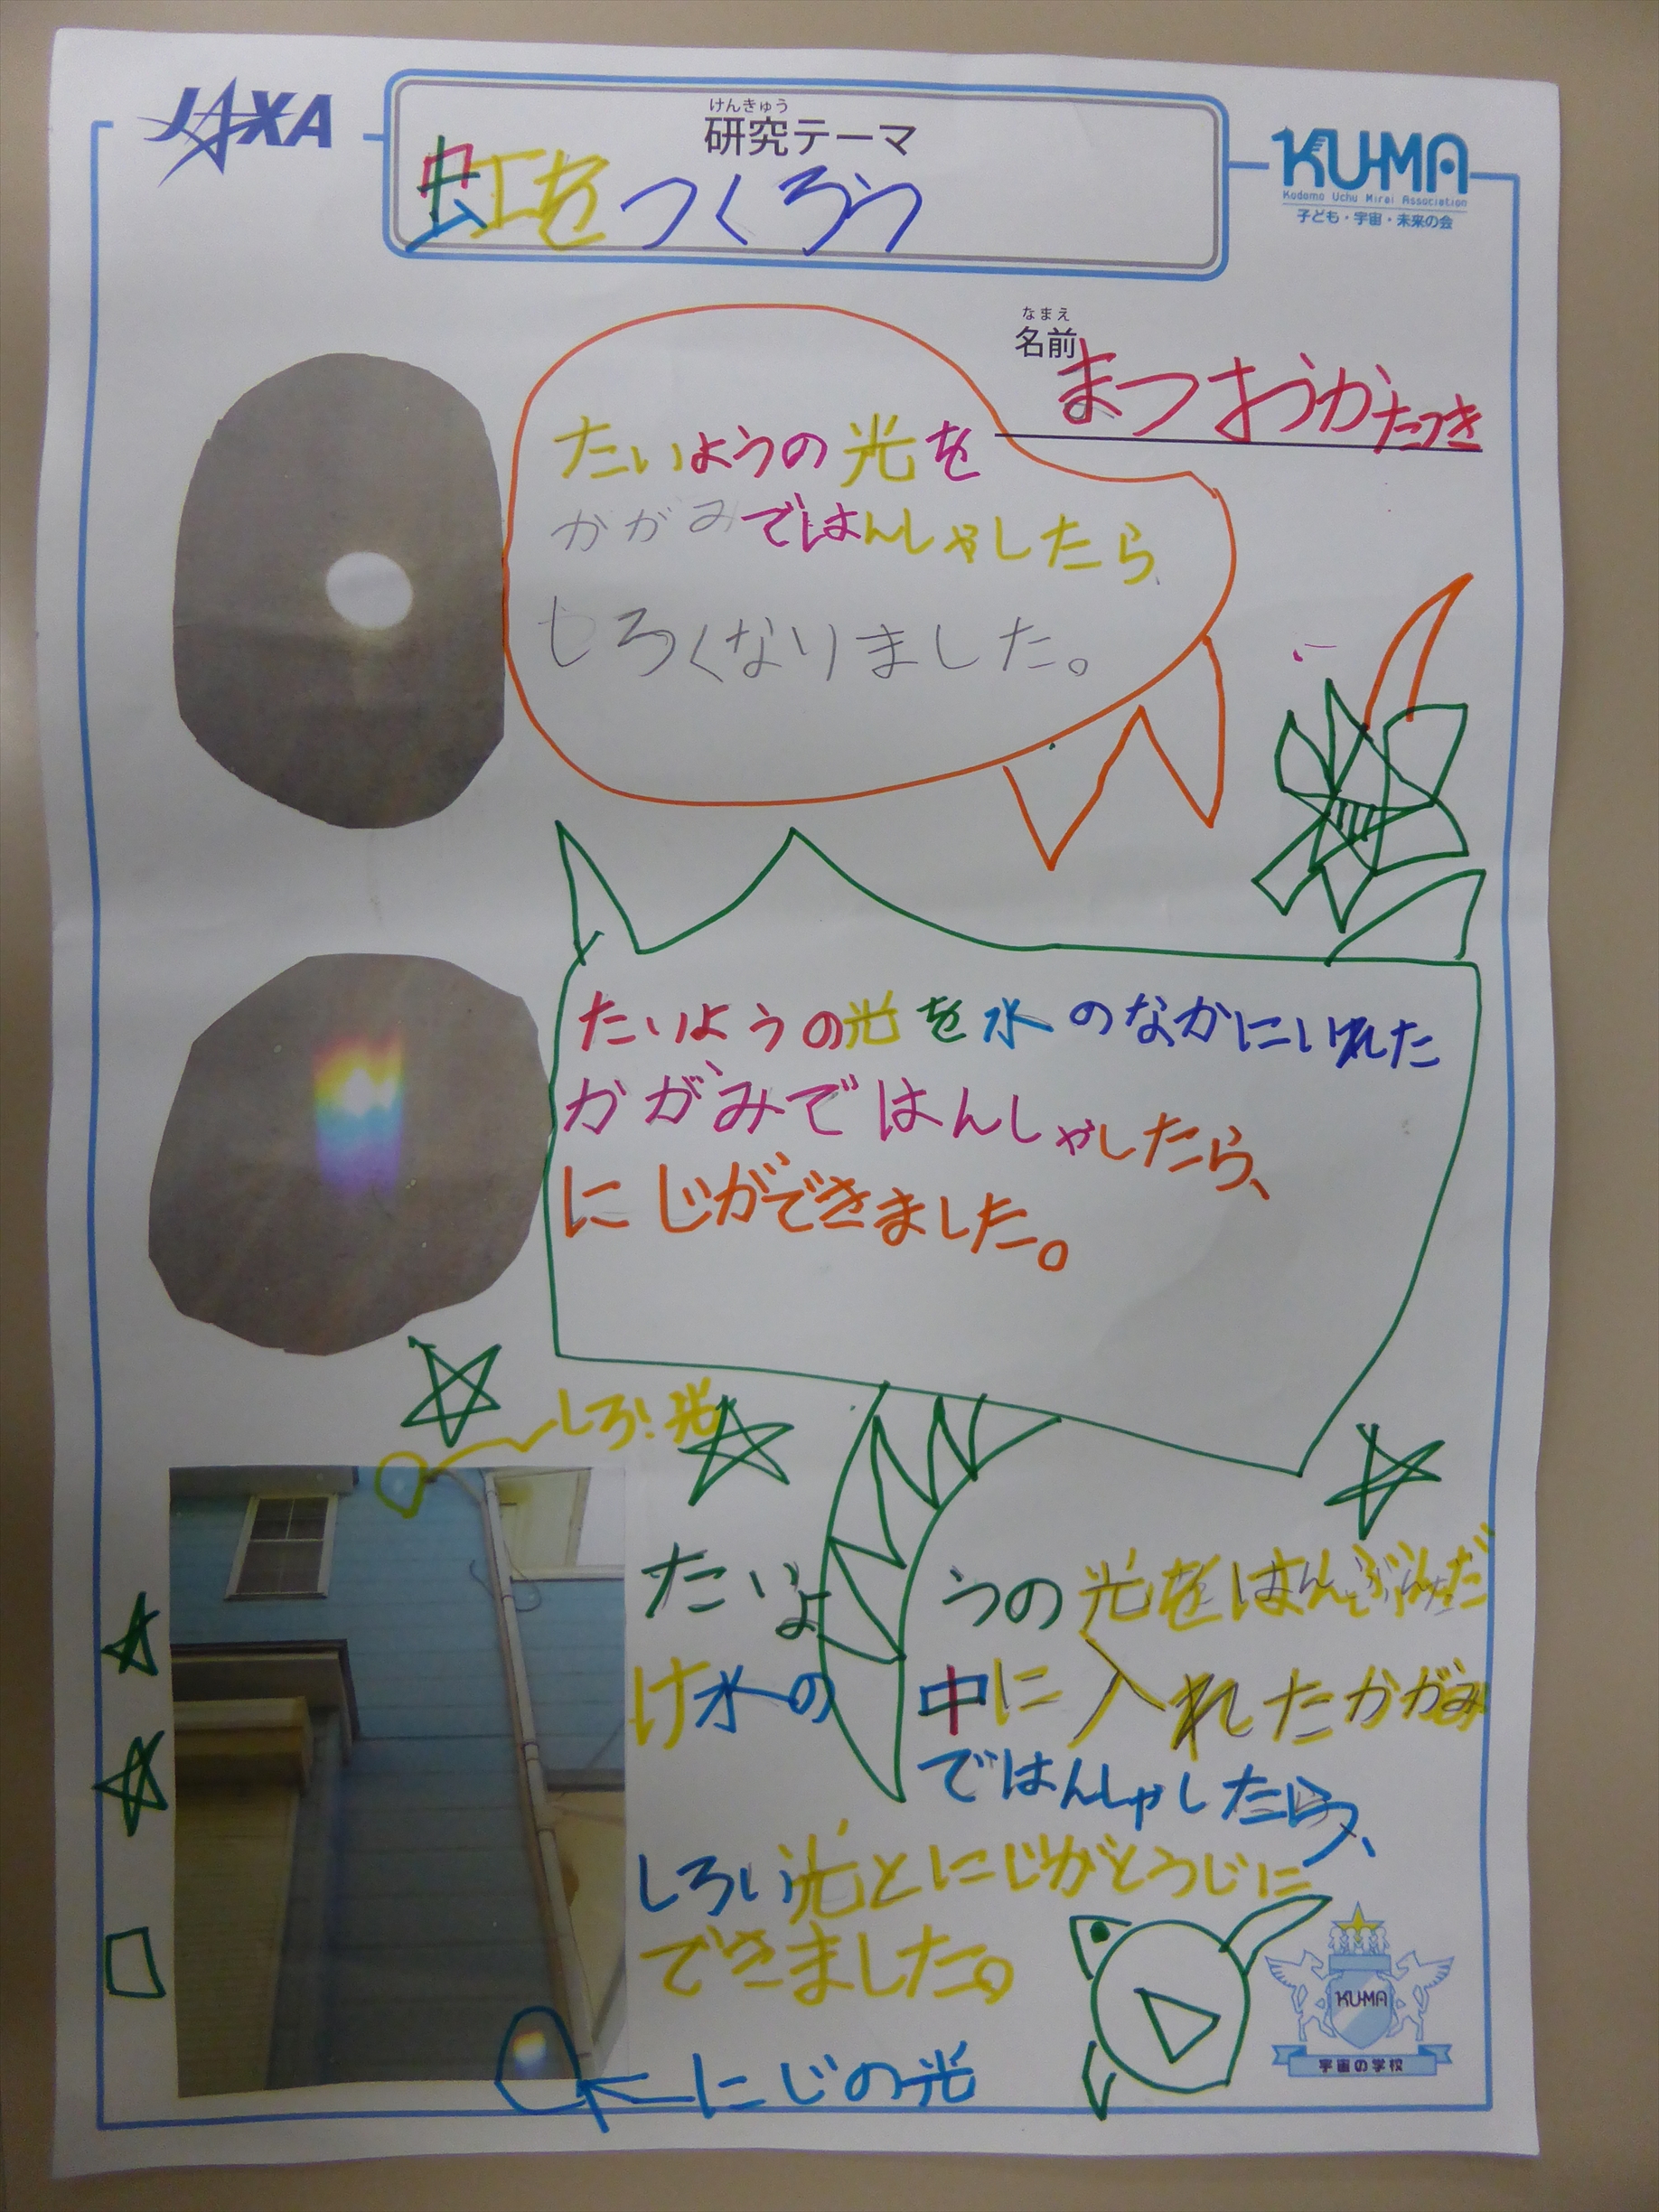 JAXA
けんきゅう
研究テーマ
虹をつくろう
KU-MA
Kodomo Uchu Mirai Association
子ども・宇宙・未来の会
なまえ
名前
まつおうかたつき
たいようの光を
かがみではんしゃしたら
しろくなりました。
たいようの光を水のなかにいれた
かがみではんしゃしたら、
にじができました。
しろい光
たいようの光をはんぶんだ
け水の中に入れたかがみ
ではんしゃしたら、
しろい光とにじがとうじに
できました。
にじの光
KU-MA
宇宙の学校